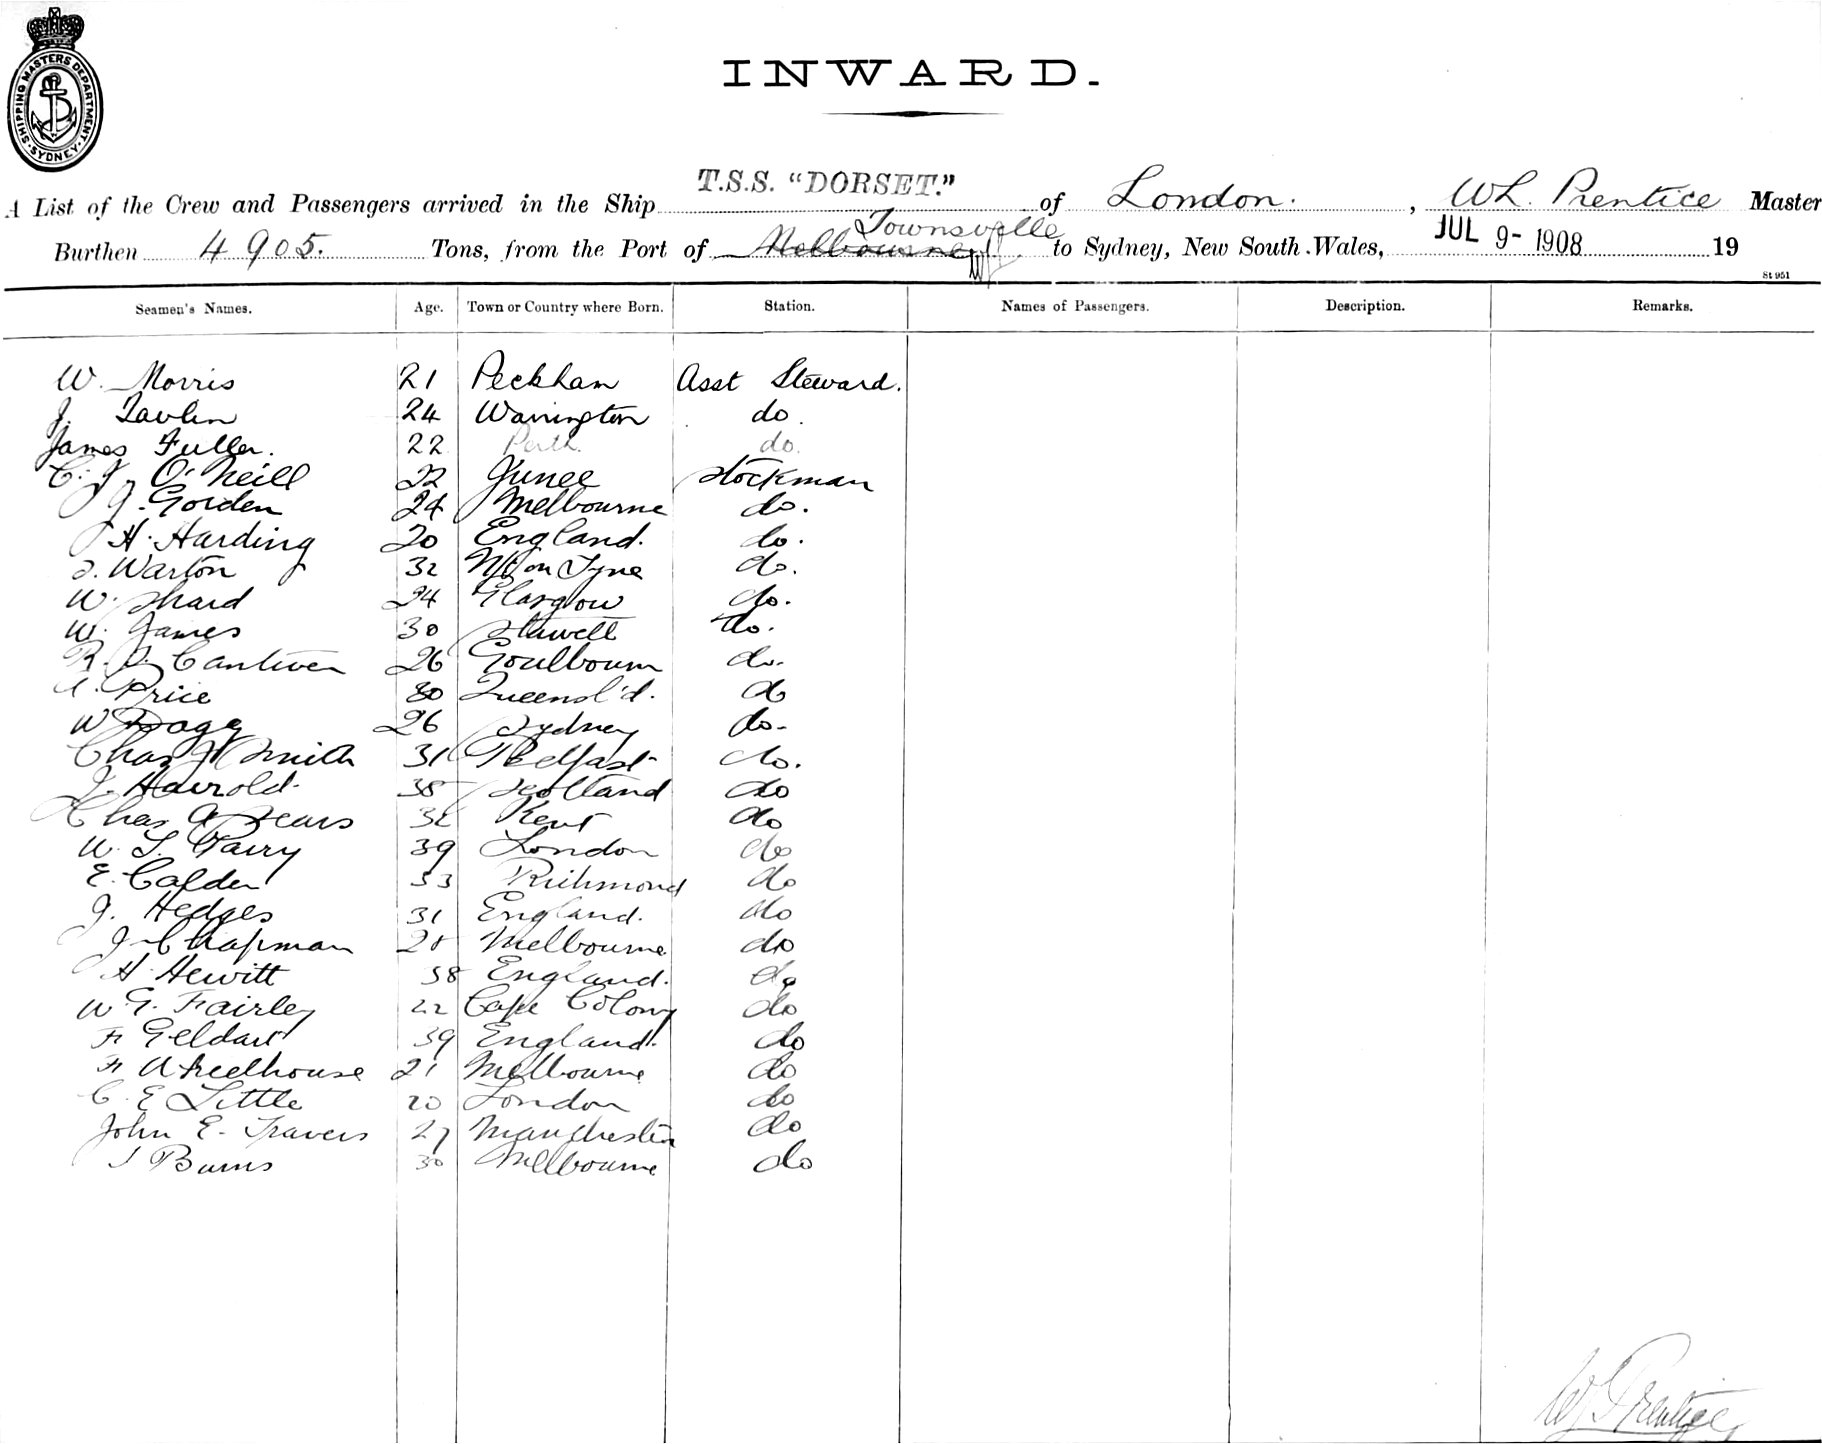 SHIPPING MASTERS DEPARTMENT. SYDNEY.
INWARD.
A List of the Crew and Passengers arrived in the Ship T.S.S. "DORSET." of London. , W L. Prentice Master
Burthen 4905. Tons, from the Port of Melbourne Townsville to Sydney, New South Wales, JUL 9- 1908 19
St 951
Seamen's Names. Age. Town or Country where Born. Station. Names of Passengers. Description. Remarks.
W. Morris 21 Peckham Asst Steward.
J. 24 Warrington do.
James Fuller. 22 Perth do.
C. J. O'Neill 22 Junee Stockman
J. Gorden 24 Melbourne do.
H. Harding 20 England. do.
Warton 32 N/C on Tyne do.
W. Shard 24 Glasgow do.
W. James 30 Stawell do.
R. 26 Goulbourn do.
A. Price 30 Queensl'd. do
W 26 Sydney do.
Chas Smith 31 Belfast do.
J. Harrold. 38 Scotland do
Chas A Sears Kent do
W. T. Parry 39 London do
E. Calder 33 Richmond do
J. Hedges 31 England. do
J Chapman Melbourne do
H. Hewitt 38 England. do
W. G. Fairley 22 Cape Colony do
F Geldart 39 England. do
F Wheelhouse 21 Melbourne do
C. E Little 20 London do
John E. Travers 27 Manchester do
Burns 30 Melbourne do
W L Prentice